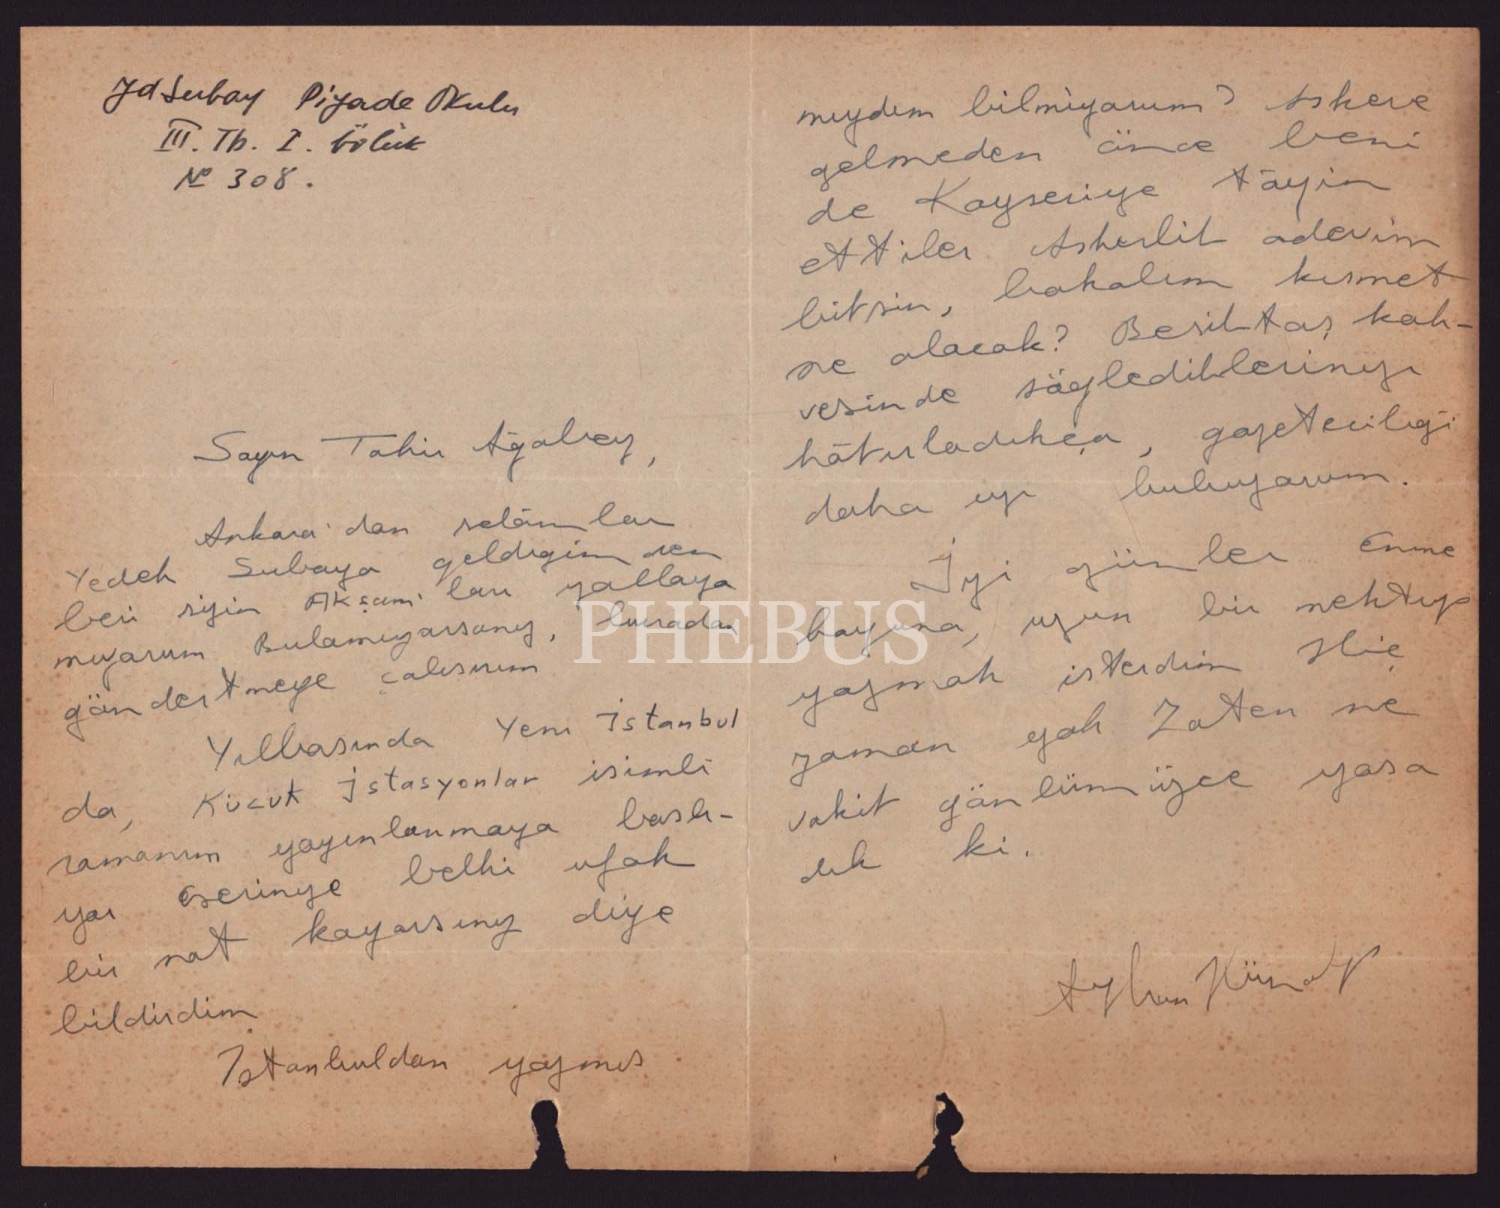 Yd Subay Piyade Okulu
III. Tb. I. Bölük
No 308.
Sayın Tahir Ağabey,
Ankara'dan selâmlar
Yedek Subaya geldiğimden
beri sizin Akşam'ları yollaya
mıyorum Bulamıyorsanız, buradan
göndertmeye çalışırım
Yılbaşında Yeni İstanbul
da, Küçük İstasyonlar isimli
romanım yayınlanmaya başlı-
yor Eserinize belki ufak
bir not koyarsınız diye
bildirdim
İstanbuldan yazmış
mıydım bilmiyorum? Askere
gelmeden önce beni
de Kayseriye tâyin
ettiler Askerlik ödevim
bitsin, bakalım kısmet
ne olacak? Beşiktaş kah-
vesinde söylediklerinizi
hâtırladıkça, gazeteciliği
daha iyi buluyorum.
İyi günler Emme
bayına, uzun bir mektup
yazmak isterdim Hiç
zaman yok Zaten ne
vakit gönlümüzce yaşa
dık ki.
PHEBUS